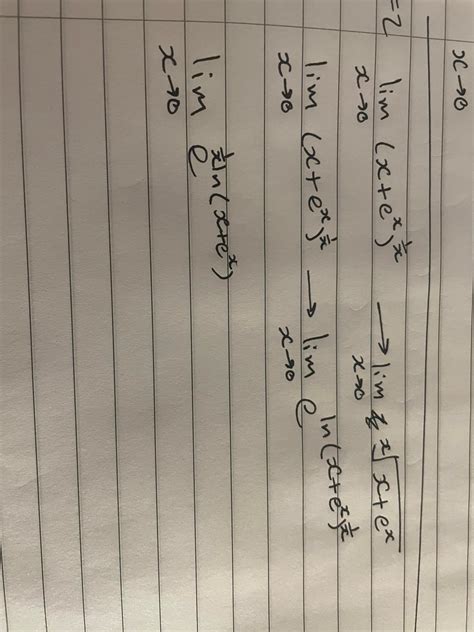 x→0
=2 lim x→0 (x+e^x)^{1/x} → lim x→0 ^x√(x+e^x)
lim x→0 (x+e^x)^{1/x} → lim x→0 e^{ln(x+e^x)^{1/x}}
lim x→0 e^{1/x ln(x+e^x)}